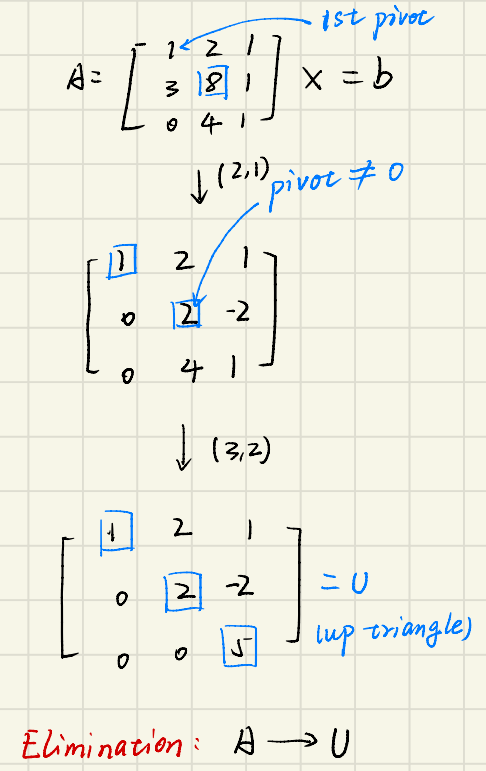 1st pivot
A = [ 1 2 1
3 8 1
0 4 1 ] x = b
↓ (2,1)
pivot ≠ 0
[ 1 2 1
0 2 -2
0 4 1 ]
↓ (3,2)
[ 1 2 1
0 2 -2
0 0 5 ] = U
(up triangle)
Elimination: A → U